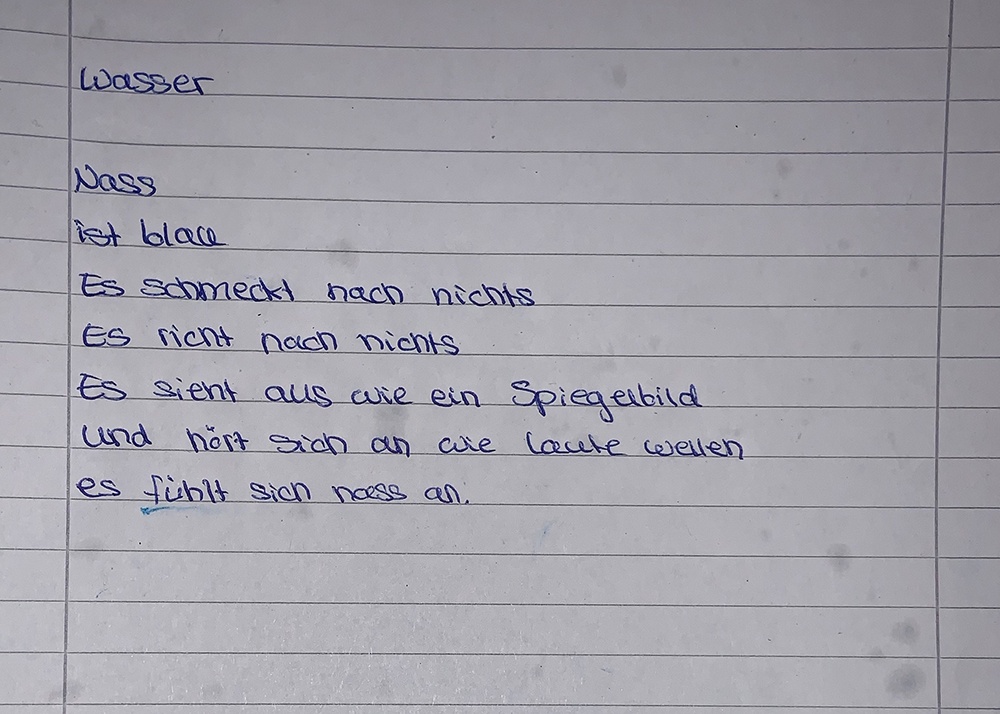 Wasser
Nass
ist blau
Es schmeckt nach nichts
Es richt nach nichts
Es sieht aus wie ein Spiegelbild
und hört sich an wie laute wellen
es fühlt sich nass an.